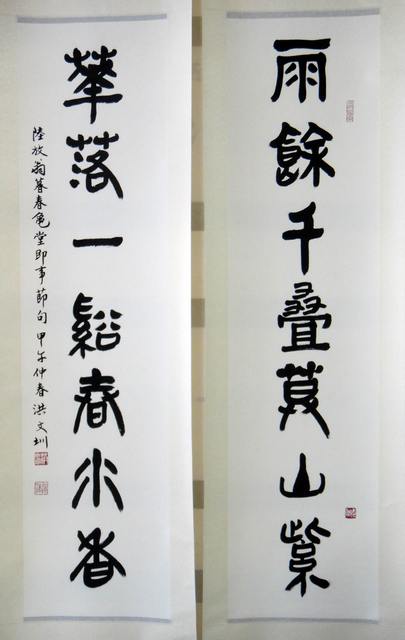 雨餘千疊莫山紫
華落一谿春水香
陸放翁暮春龜堂即事節句 甲午仲春 洪文圳